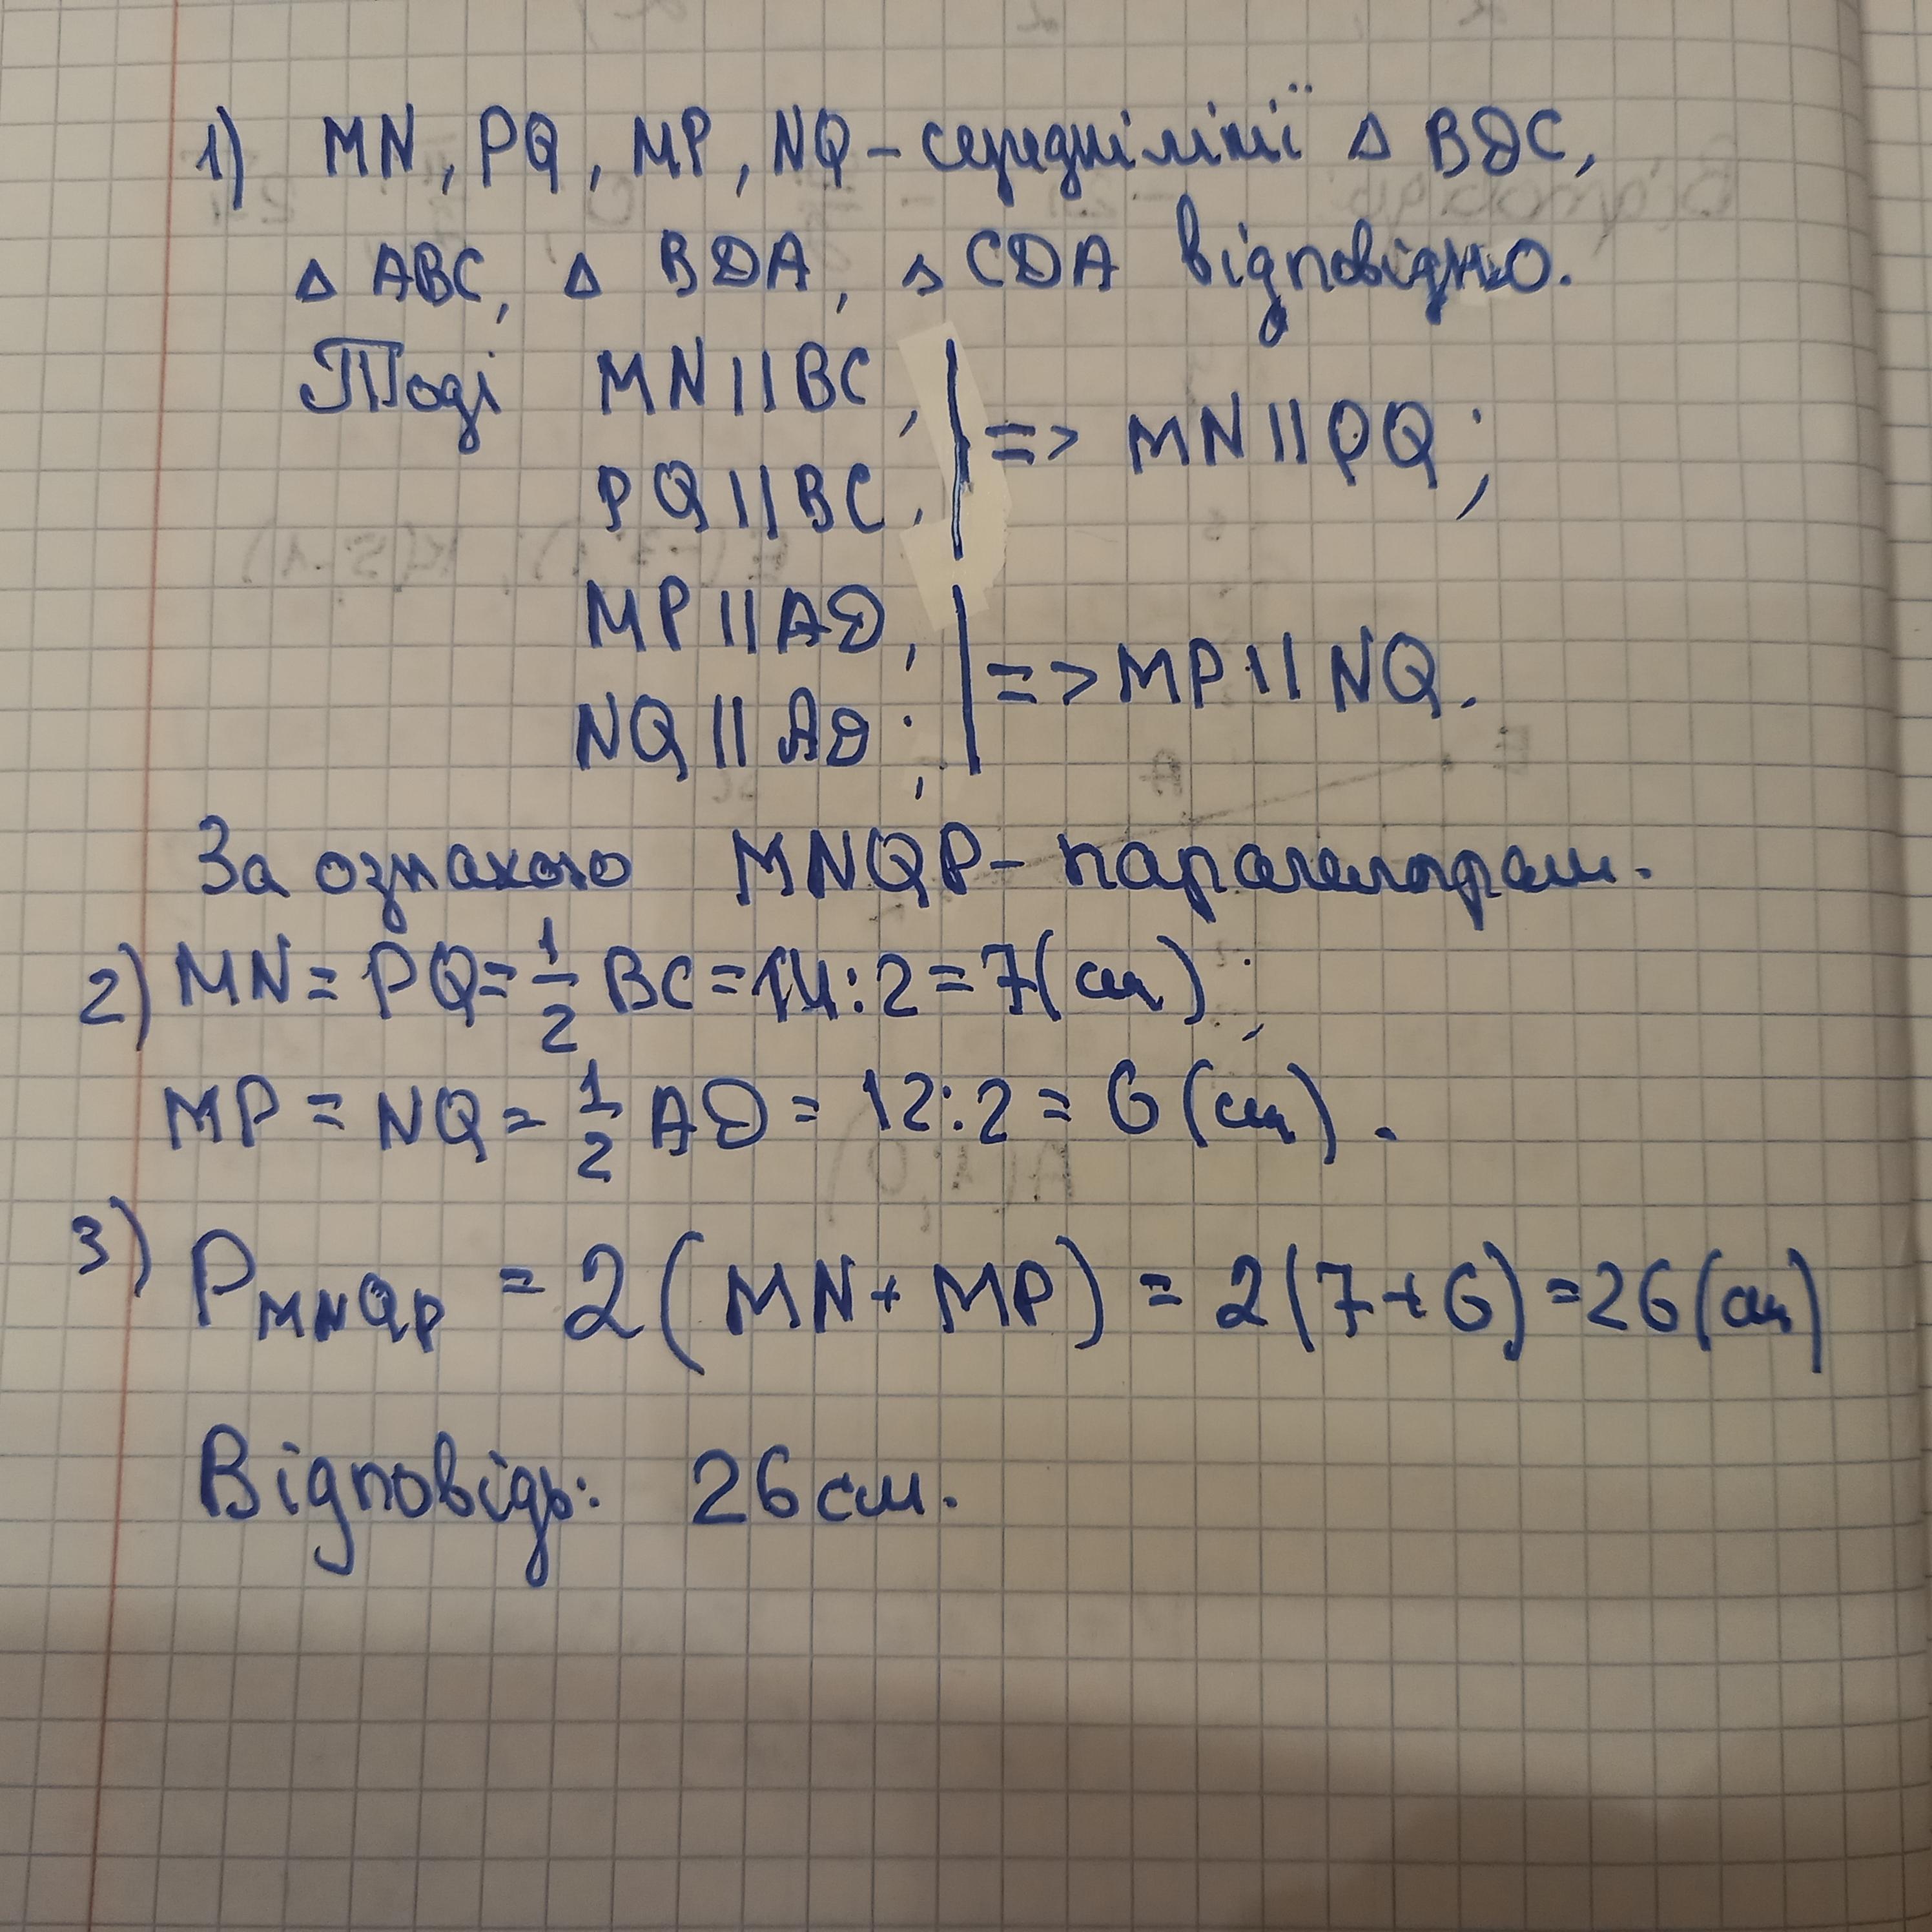 1) MN, PQ, MP, NQ – середні лінії Δ BDC,
Δ ABC, Δ BDA, Δ CDA відповідно.
Тоді MN || BC,
PQ || BC. => MN || PQ;
MP || AD,
NQ || AD; => MP || NQ.
За ознакою MNQP – паралелограм.
2) MN = PQ = 1/2 BC = 14:2 = 7 (см);
MP = NQ = 1/2 AD = 12:2 = 6 (см).
3) P MNQP = 2 (MN + MP) = 2(7+6) = 26 (см)
Відповідь: 26 см.